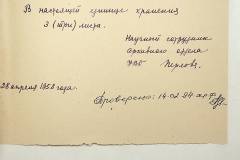 В настоящей единице хранения
3 (три) листа.
Научный сотрудник
архивного отдела
Перлов.
28 апреля 1958 года.
Проверено: 14.02.94